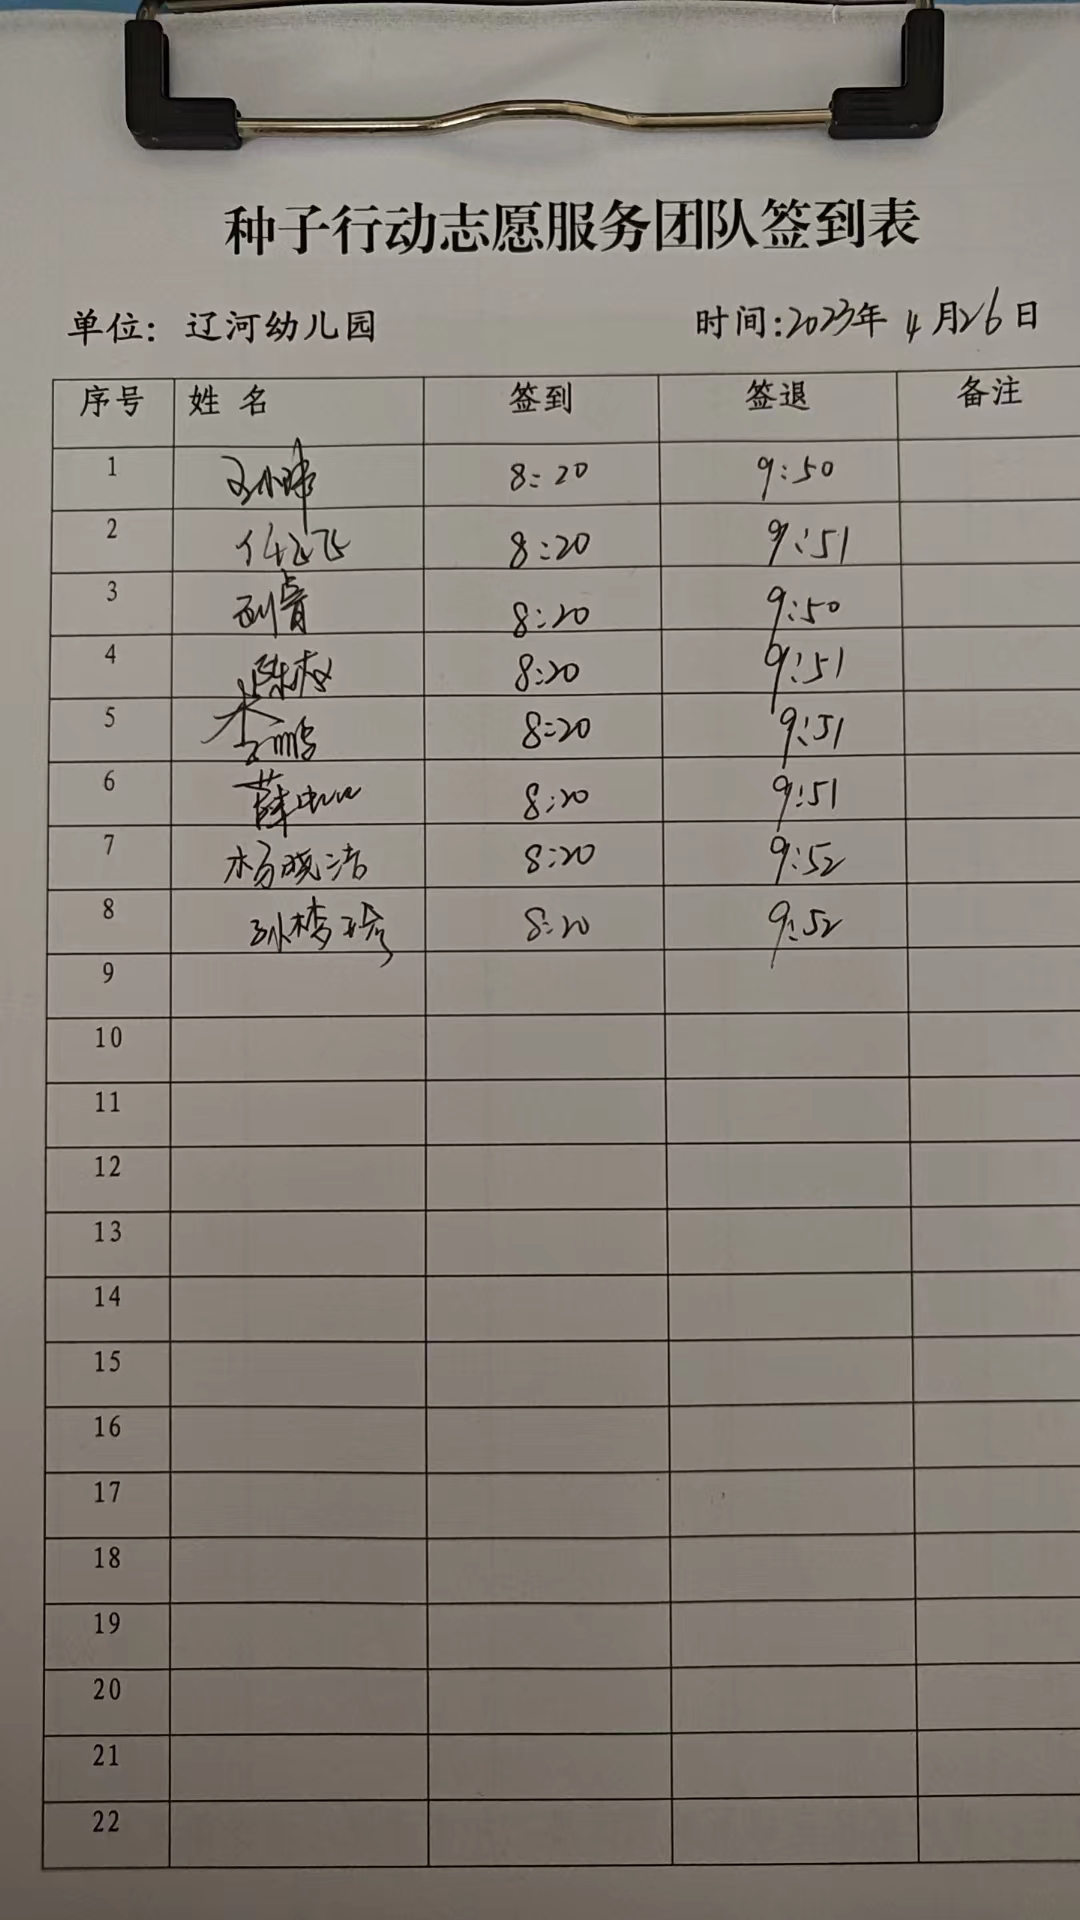 种子行动志愿服务团队签到表
单位: 辽河幼儿园 时间:2023年 4月26日
序号 姓名 签到 签退 备注
1 8:20 9:50
2 任飞飞 8:20 9:51
3 8:20 9:50
4 8:20 9:51
5 李鹏 8:20 9:51
6 薛 8:20 9:51
7 杨晓洁 8:20 9:52
8 孙梦 8:20 9:52
9
10
11
12
13
14
15
16
17
18
19
20
21
22